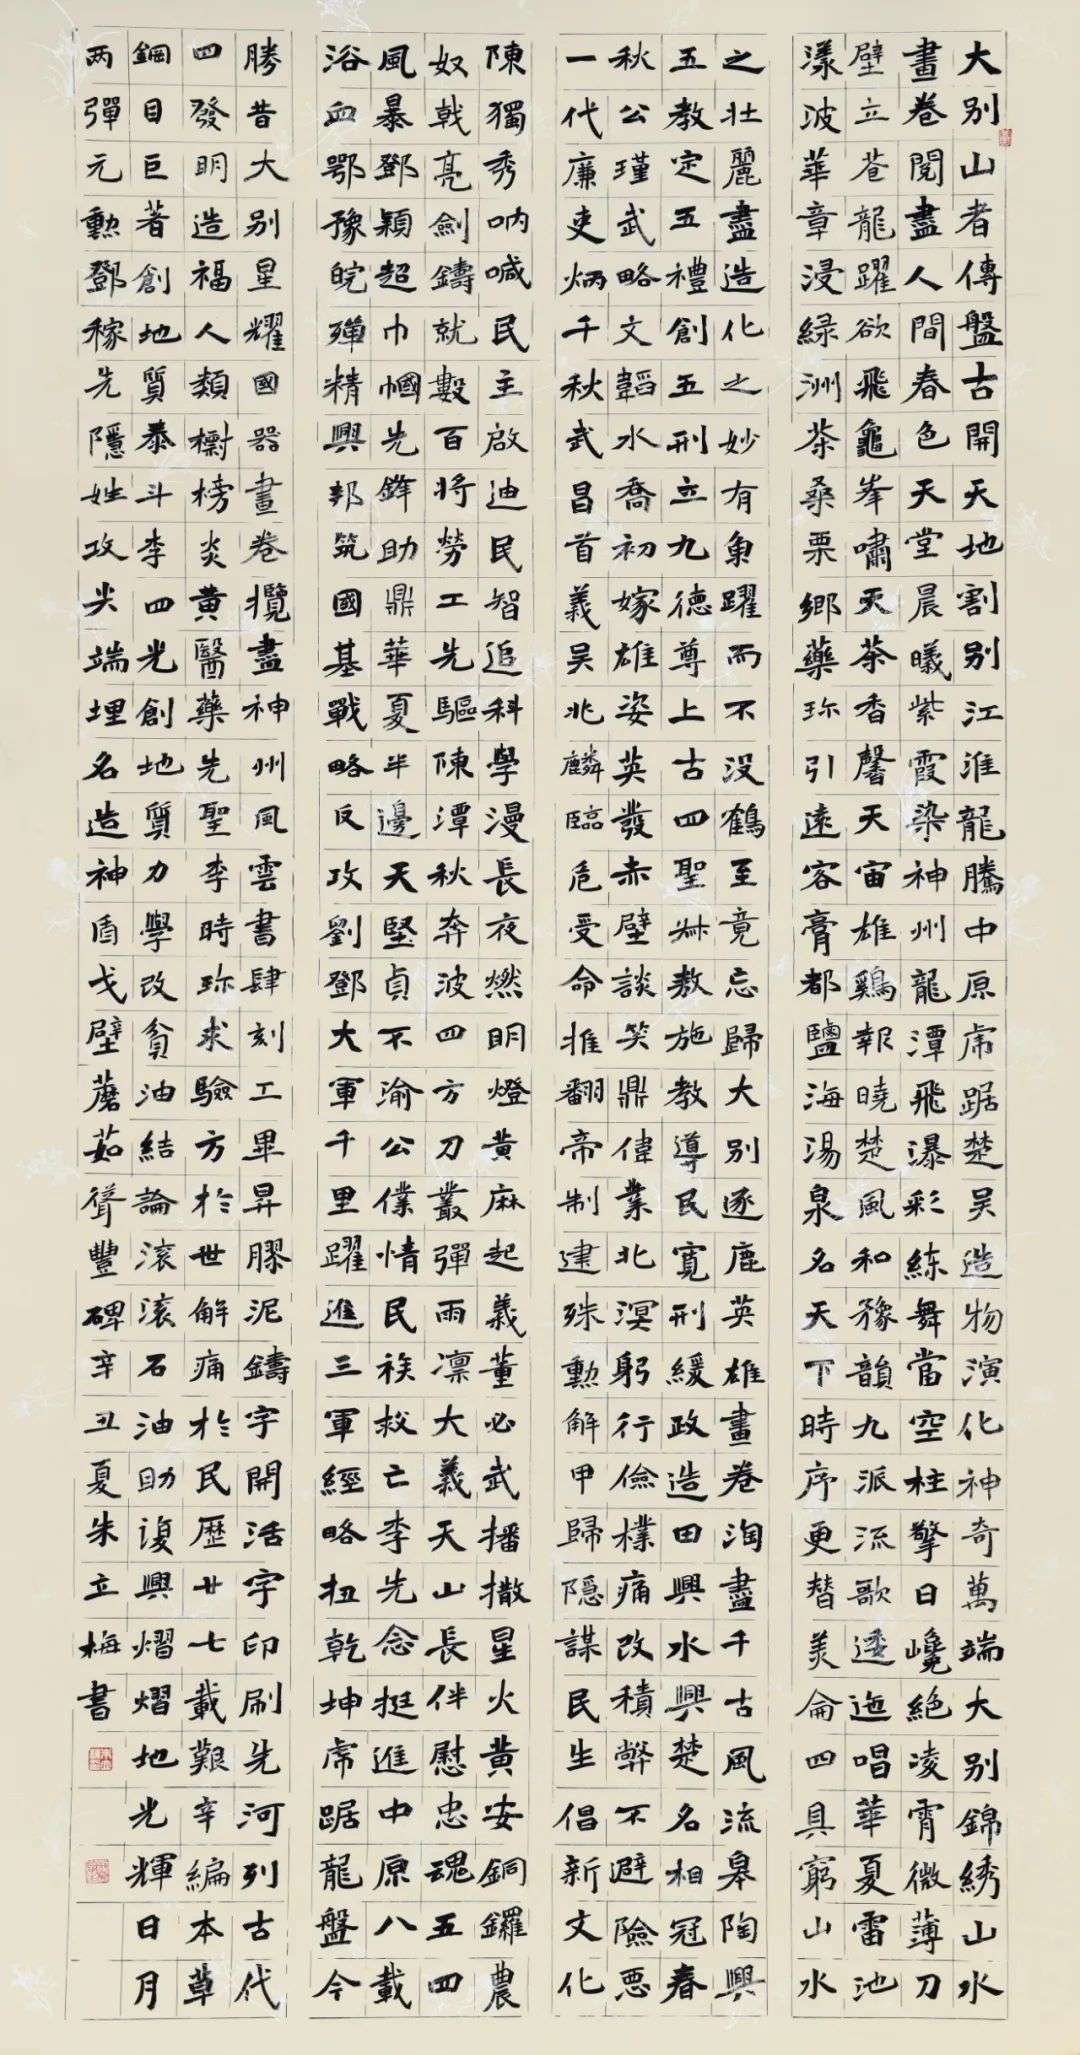 大别山者傳盤古開天地割别江淮龍騰中原虎踞楚吴造物演化神奇萬端大别錦綉山水
畫卷閲盡人間春色天堂晨曦紫霞染神州龍潭飛瀑彩練舞當空柱擎日巉絶凌霄微薄刀
壁立蒼龍躍欲飛龜峯嘯天茶香馨天宙雄鷄報曉楚風和豫韻九派流歌逶迤唱華夏雷池
漾波華章浸緑洲茶桑栗鄉藥珍引遠客膏都鹽海湯泉名天下時序更替美侖四具窮山水
之壮麗盡造化之妙有魚躍而不没鶴至竟忘歸大别逐鹿英雄畫卷淘盡千古風流皋陶興
五教定五禮創五刑立九德尊上古四聖叔敖施教導民寬刑緩政造田興水興楚名相冠春
秋公瑾武略文韜水喬初嫁雄姿英發赤壁談笑鼎偉業北溟躬行儉樸痛改積弊不避險惡
一代廉吏炳千秋武昌首義吴兆麟臨危受命推翻帝制建殊勳解甲歸隱謀民生倡新文化
陳獨秀呐喊民主啟迪民智追科學漫長夜燃明燈黄麻起義董必武播撒星火黄安銅鑼農
奴戟亮劍鑄就數百將勞工先驅陳潭秋奔波四方刀叢彈雨凛大義天山長伴慰忠魂五四
風暴鄧穎超巾幗先鋒助鼎華夏半邊天堅貞不渝公僕情民族救亡李先念挺進中原八載
浴血鄂豫皖殫精興邦筑國基戰略反攻劉鄧大軍千里躍進三軍經略扭乾坤虎踞龍盤今
勝昔大别星耀國器畫卷攬盡神州風雲書肆刻工畢昇膠泥鑄字開活字印刷先河列古代
四發明造福人類榭榜炎黄醫藥先聖李時珍求驗方於世解痛於民歷廿七載艱辛編本草
鋼目巨著創地質泰斗李四光創地質力學改貧油結論滚滚石油助復興熠熠地光輝日月
两彈元勳鄧稼先隱姓攻尖端埋名造神盾戈壁蘑茹聳豐碑辛丑夏朱立梅書